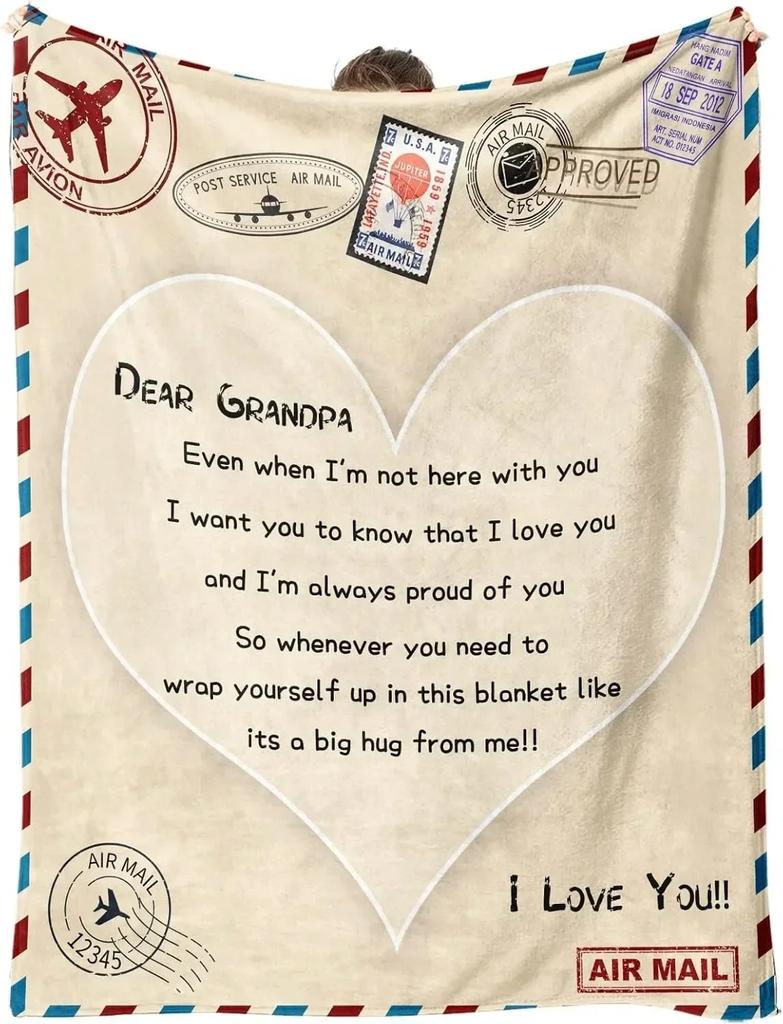 AIR MAIL
PAR AVION
POST SERVICE AIR MAIL
U.S.A.
JUPITER
LAFAYETTE, IND.
1859 ★ 1959
7¢
AIR MAIL
AIR MAIL
12345
APPROVED
HANG NADIM
GATE A
KEDATANGAN ARRIVAL
18 SEP 2012
IMIGRASI INDONESIA
ART. SERIAL NUM
ACT NO. 012345
DEAR GRANDPA
Even when I'm not here with you
I want you to know that I love you
and I'm always proud of you
So whenever you need to
wrap yourself up in this blanket like
its a big hug from me!!
I LOVE YOU!!
AIR MAIL
12345
AIR MAIL